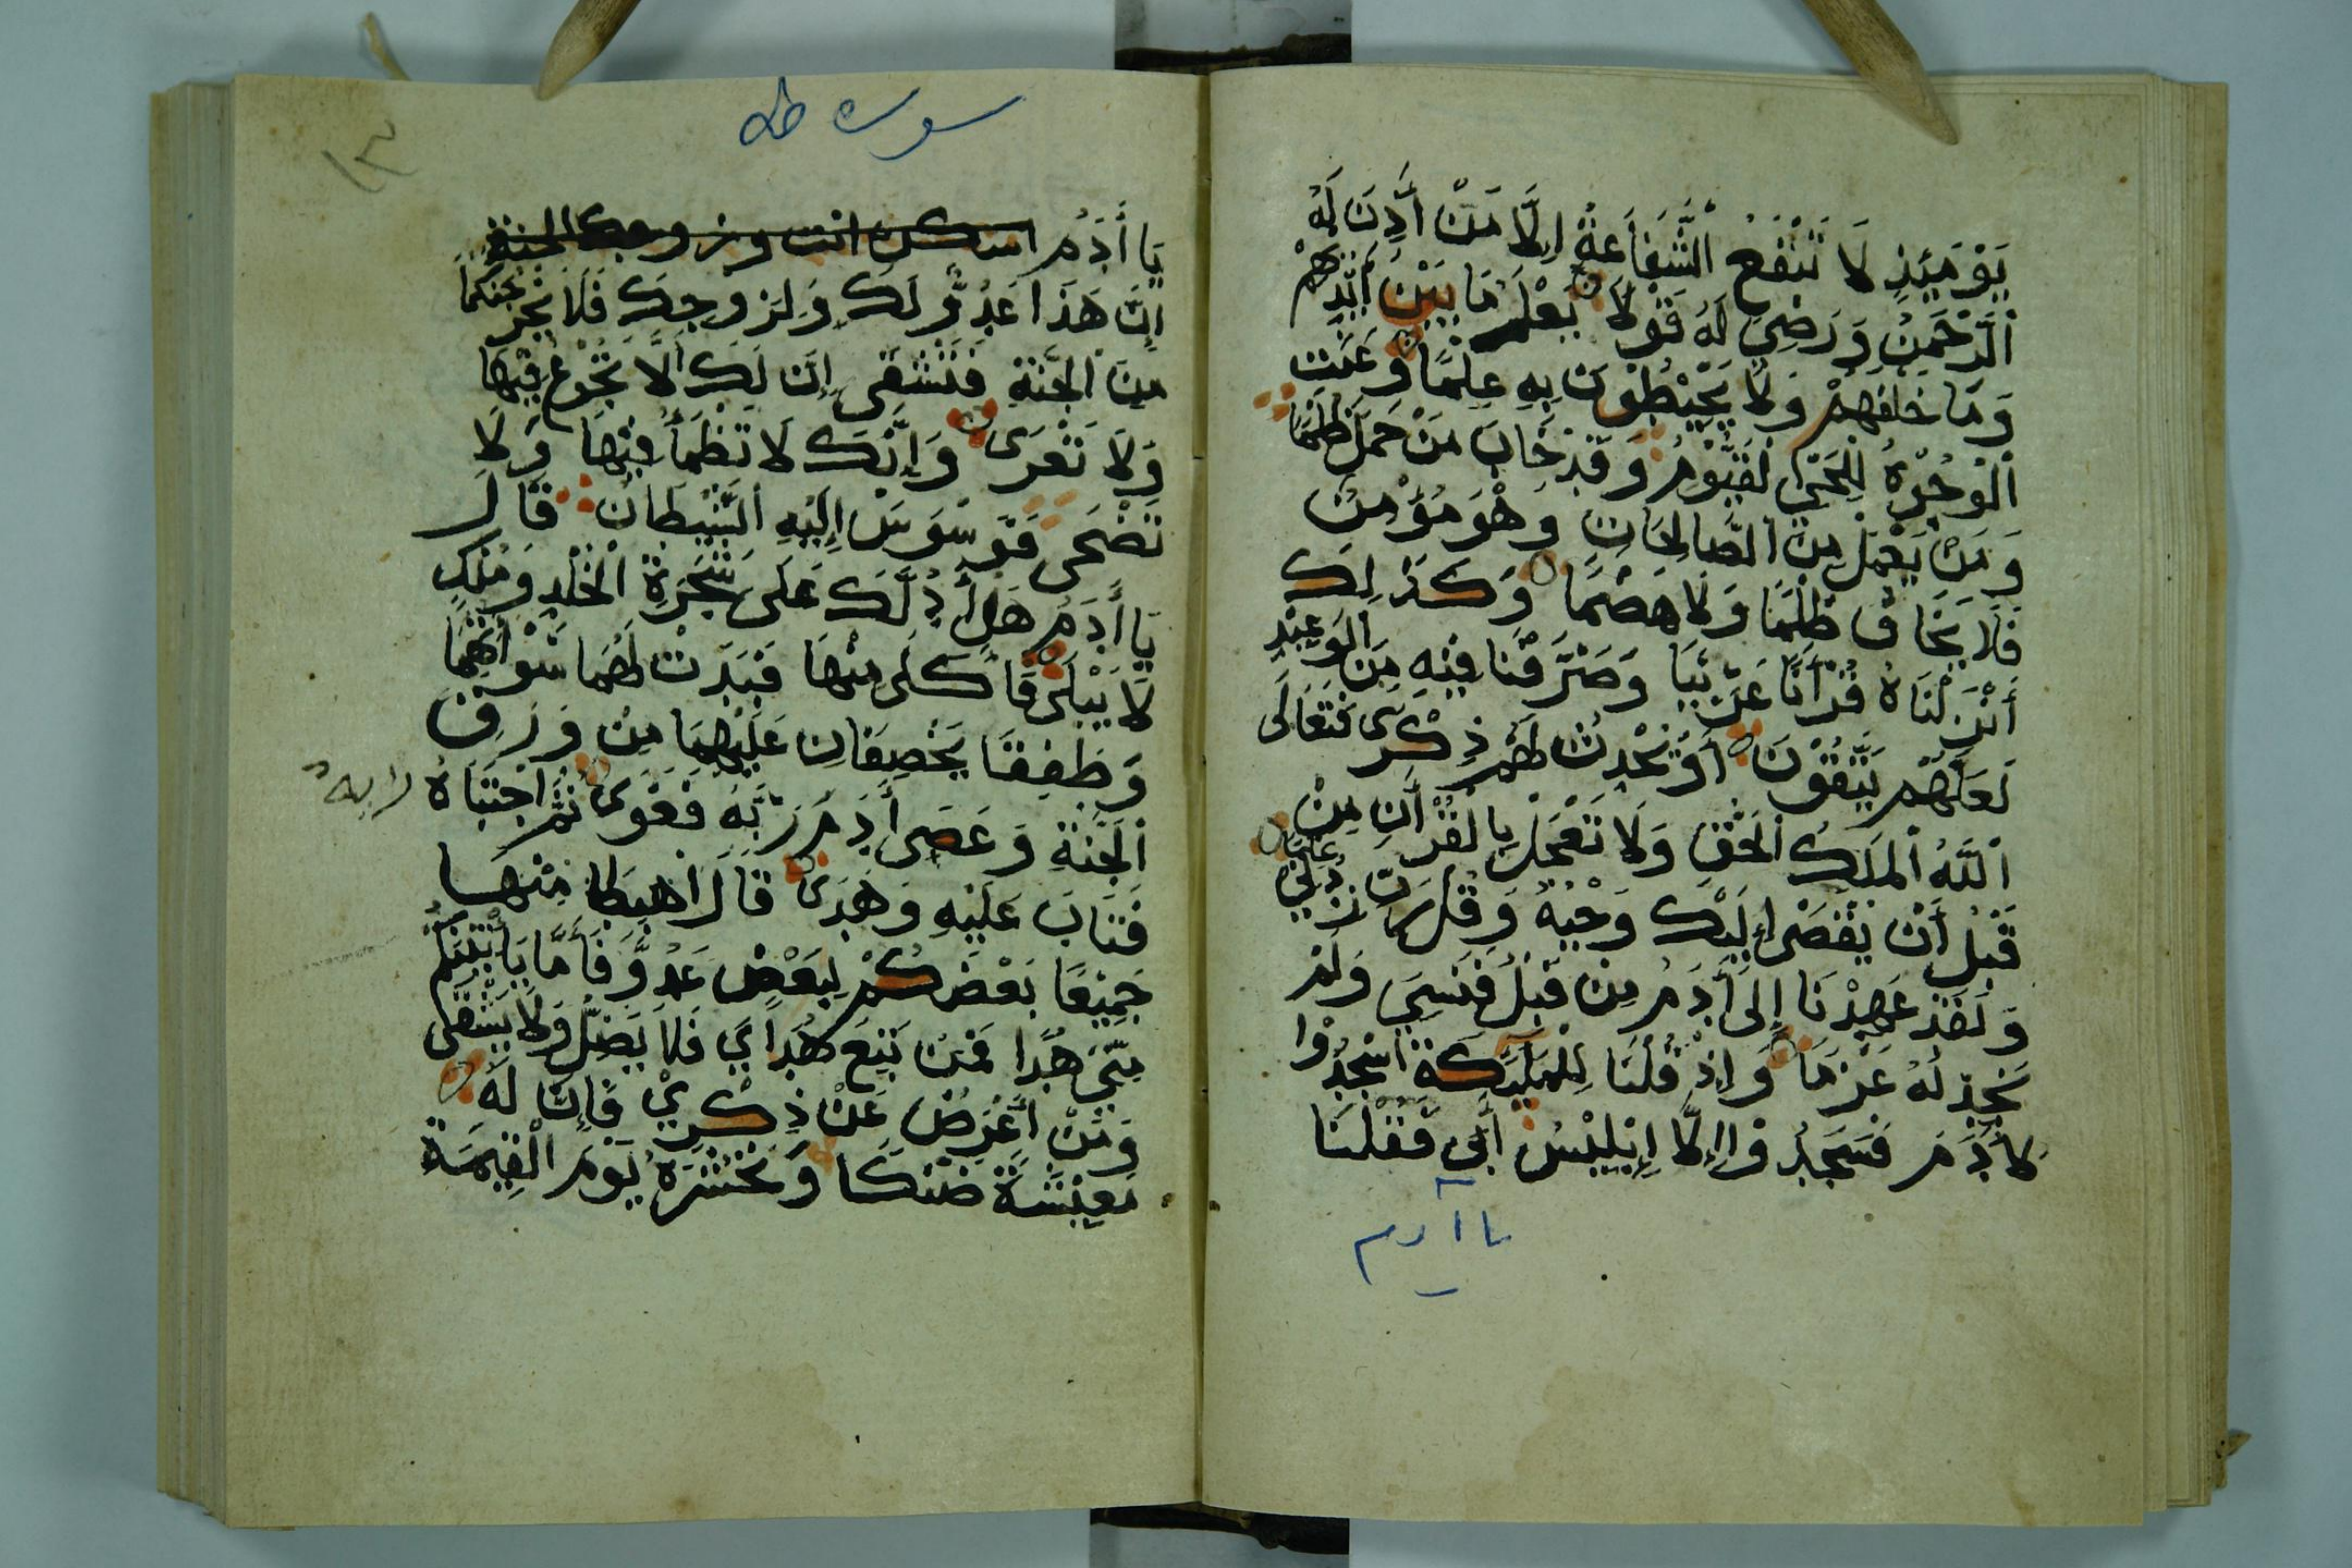 يَوْمَئِذٍ لَا تَنْفَعُ الشَّفَاعَةُ إِلَّا مَنْ أَذِنَ لَهُ
الرَّحْمَنُ وَرَضِيَ لَهُ قَوْلًا يَعْلَمُ مَا بَيْنَ أَيْدِيهِمْ
وَمَا خَلْفَهُمْ وَلَا يُحِيْطُونَ بِهِ عِلْمًا وَعَنَتِ
الْوُجُوْهُ لِلْحَيِّ الْقَيُّوْمِ وَقَدْ خَابَ مَنْ حَمَلَ ظُلْمًا
وَمَنْ يَعْمَلْ مِنَ الصَّالِحَاتِ وَهْوَ مُؤْمِنٌ
فَلَا يَخَافُ ظُلْمًا وَلَا هَضْمًا وَكَذَلِكَ
أَنْزَلْنَاهُ قُرْآنًا عَرَبِيًّا وَصَرَّفْنَا فِيْهِ مِنَ الْوَعِيْدِ
لَعَلَّهُمْ يَتَّقُوْنَ أَوْ يُحْدِثُ لَهُمْ ذِكْرَى فَتَعَالَى
اللَّهُ الْمَلِكُ الْحَقُّ وَلَا تَعْجَلْ بِالْقُرْآنِ مِنْ
قَبْلِ أَنْ يُقْضَى إِلَيْكَ وَحْيُهُ وَقُلْ رَبِّ زِدْنِي عِلْمًا
وَلَقَدْ عَهِدْنَا إِلَى أَدَمَ مِنْ قَبْلُ فَنَسِيَ وَلَمْ
نَجِدْ لَهُ عَزْمًا وَإِذْ قُلْنَا لِلْمَلَئِكَةِ اسْجُدُوا
لِأَدَمَ فَسَجَدُوْا إِلَّا إِبْلِيْسَ أَبَى فَقُلْنَا
يا آدم
سورة طه
١٣
يَا أَدَمُ اسكن انت وزوجك الجنة
إِنَّ هَذَا عَدُوٌّ لَكَ وَلِزَوجِكَ فَلَا يُخْرِجَنَّكُمَا
مِنَ الْجَنَّةِ فَتَشْقَى إِنَّ لَكَ أَلَّا تَجُوْعَ فِيْهَا
وَلَا تَعْرَى وَإِنَّكَ لَا تَظْمَأُ فِيْهَا وَلَا
تَضْحَى فَوَسْوَسَ إِلَيْهِ الشَّيْطَانُ قَالَ
يَا أَدَمُ هَلْ أَدُلُّكَ عَلَى شَجَرَةِ الْخُلْدِ وَمُلْكٍ
لَا يَبْلَى فَأَكَلَا مِنْهَا فَبَدَتْ لَهُمَا سَوْآتُهُمَا
وَطَفِقَا يَخْصِفَانِ عَلَيْهِمَا مِنْ وَرَقِ
الْجَنَّةِ وَعَصَى أَدَمُ رَبَّهُ فَغَوَى ثُمَّ اجْتَبَاهُ
فَتَابَ عَلَيْهِ وَهَدَى قَالَ اهْبِطَا مِنْهَا
جَمِيْعًا بَعْضُكُمْ لِبَعْضٍ عَدُوٌّ فَأَمَّا يَأْتِيَنَّكُمْ
مِنِّي هُدًا فَمَنِ اتَّبَعَ هُدَايَ فَلَا يَضِلُّ وَلَا يَشْقَى
وَمَنْ أَعْرَضَ عَنْ ذِكْرِيْ فَإِنَّ لَهُ
مَعِيْشَةً ضَنْكًا وَنَحْشُرُهُ يَوْمَ الْقِيَمَةِ